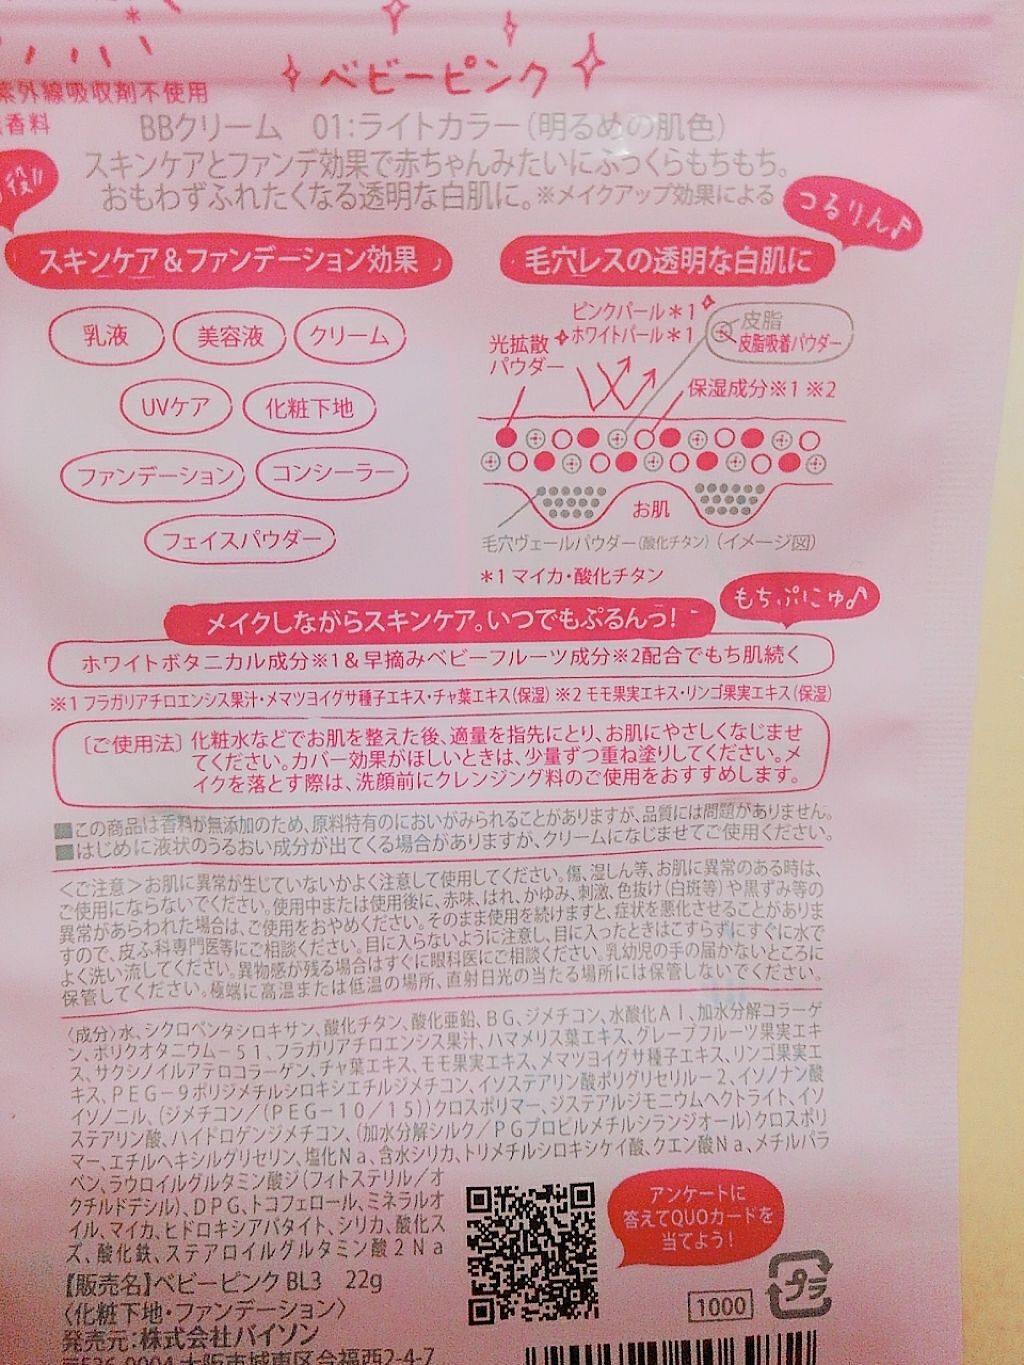 ベビーピンク
紫外線吸収剤不使用
香料
BBクリーム 01:ライトカラー(明るめの肌色)
スキンケアとファンデ効果で赤ちゃんみたいにふっくらもちもち。
おもわずふれたくなる透明な白肌に。※メイクアップ効果による
役!!
つるりん♪
スキンケア&ファンデーション効果
乳液
美容液
クリーム
UVケア
化粧下地
ファンデーション
コンシーラー
フェイスパウダー
毛穴レスの透明な白肌に
ピンクパール*1
ホワイトパール*1
光拡散
パウダー
皮脂
皮脂吸着パウダー
保湿成分※1 ※2
お肌
毛穴ヴェールパウダー(酸化チタン)(イメージ図)
*1 マイカ・酸化チタン
もちぷにゅ♪
メイクしながらスキンケア。いつでもぷるんっ!
ホワイトボタニカル成分※1&早摘みベビーフルーツ成分※2配合でもち肌続く
※1 フラガリアチロエンシス果汁・メマツヨイグサ種子エキス・チャ葉エキス(保湿) ※2 モモ果実エキス・リンゴ果実エキス(保湿)
〔ご使用法〕化粧水などでお肌を整えた後、適量を指先にとり、お肌にやさしくなじませ
てください。カバー効果がほしいときは、少量ずつ重ね塗りしてください。メ
イクを落とす際は、洗顔前にクレンジング料のご使用をおすすめします。
■この商品は香料が無添加のため、原料特有のにおいがみられることがありますが、品質には問題がありません。
■はじめに液状のうるおい成分が出てくる場合がありますが、クリームになじませてご使用ください。
<ご注意>お肌に異常が生じていないかよく注意して使用してください。傷、湿しん等、お肌に異常のある時は、
ご使用にならないでください。使用中または使用後に、赤味、はれ、かゆみ、刺激、色抜け(白斑等)や黒ずみ等の
異常があらわれた場合は、ご使用をおやめください。そのまま使用を続けますと、症状を悪化させることがありま
すので、皮ふ科専門医等にご相談ください。目に入らないように注意し、目に入ったときはこすらずにすぐに水で
よく洗い流してください。異物感が残る場合はすぐに眼科医にご相談ください。乳幼児の手の届かないところに
保管してください。極端に高温または低温の場所、直射日光の当たる場所には保管しないでください。
〈成分〉水、シクロペンタシロキサン、酸化チタン、酸化亜鉛、BG、ジメチコン、水酸化Al、加水分解コラーゲ
ン、ポリクオタニウム-51、フラガリアチロエンシス果汁、ハマメリス葉エキス、グレープフルーツ果実エキ
ス、サクシノイルアテロコラーゲン、チャ葉エキス、モモ果実エキス、メマツヨイグサ種子エキス、リンゴ果実エ
キス、PEG-9ポリジメチルシロキシエチルジメチコン、イソステアリン酸ポリグリセリル-2、イソノナン酸
イソノニル、(ジメチコン/(PEG-10/15))クロスポリマー、ジステアルジモニウムヘクトライト、イソ
ステアリン酸、ハイドロゲンジメチコン、(加水分解シルク/PGプロピルメチルシランジオール)クロスポリ
マー、エチルヘキシルグリセリン、塩化Na、含水シリカ、トリメチルシロキシケイ酸、クエン酸Na、メチルパラ
ベン、ラウロイルグルタミン酸ジ(フィトステリル/オ
クチルドデシル)、DPG、トコフェロール、ミネラルオ
イル、マイカ、ヒドロキシアパタイト、シリカ、酸化ス
ズ、酸化鉄、ステアロイルグルタミン酸2Na
【販売名】ベビーピンク BL3 22g
〈化粧下地・ファンデーション〉
発売元:株式会社バイソン
〒536-0004 大阪市城東区今福西2-4-7
アンケートに
答えてQUOカードを
当てよう!
1000
プラ